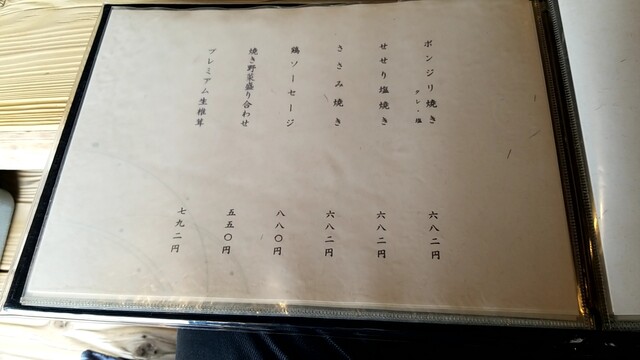 ボンジリ焼き タレ・塩 六八二円
せせり塩焼き 六八二円
ささみ焼き 六八二円
鶏ソーセージ 八八〇円
焼き野菜盛り合わせ 五五〇円
プレミアム生椎茸 七九二円